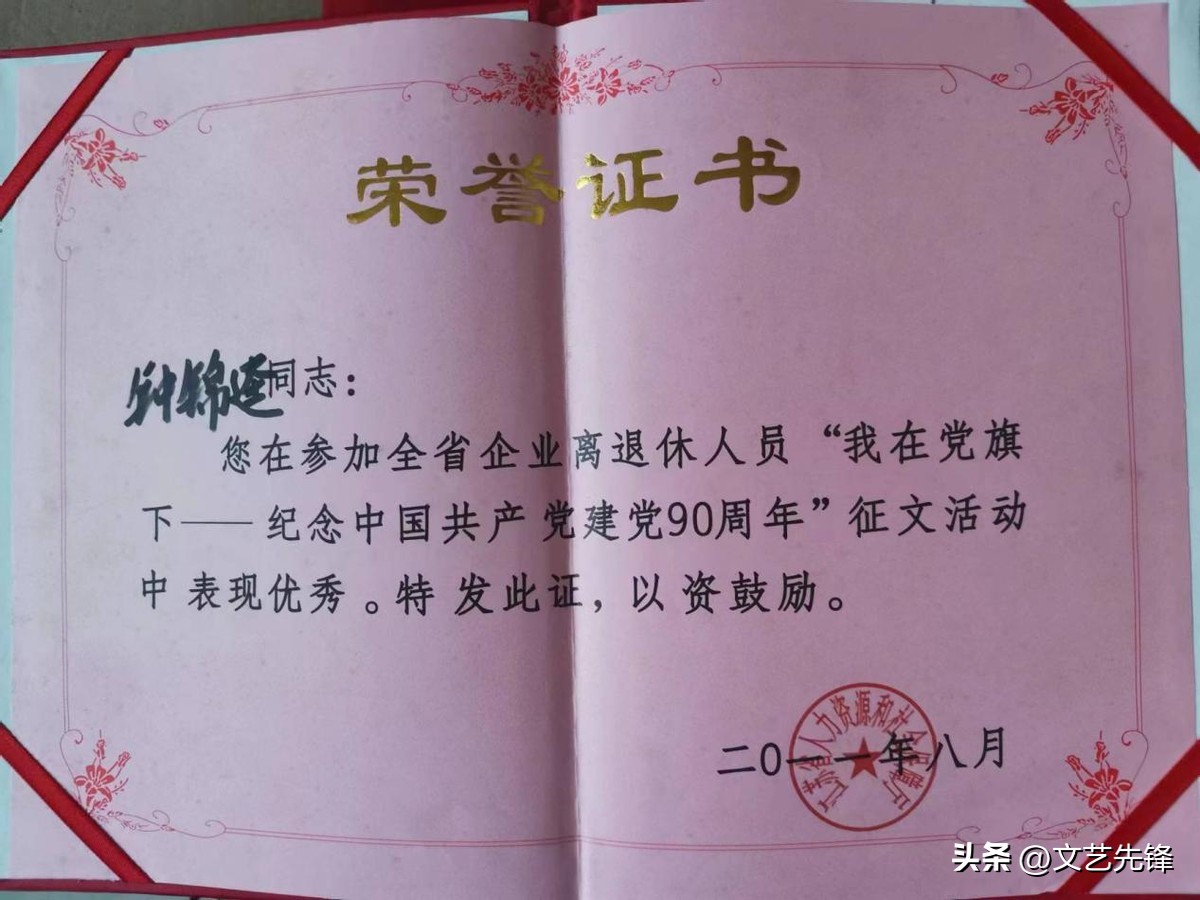 荣誉证书
钟锦连同志：
您在参加全省企业离退休人员“我在党旗
下——纪念中国共产党建党90周年”征文活动
中表现优秀。特发此证，以资鼓励。
江苏省人力资源和社会保障厅
二〇一一年八月
头条 @文艺先锋